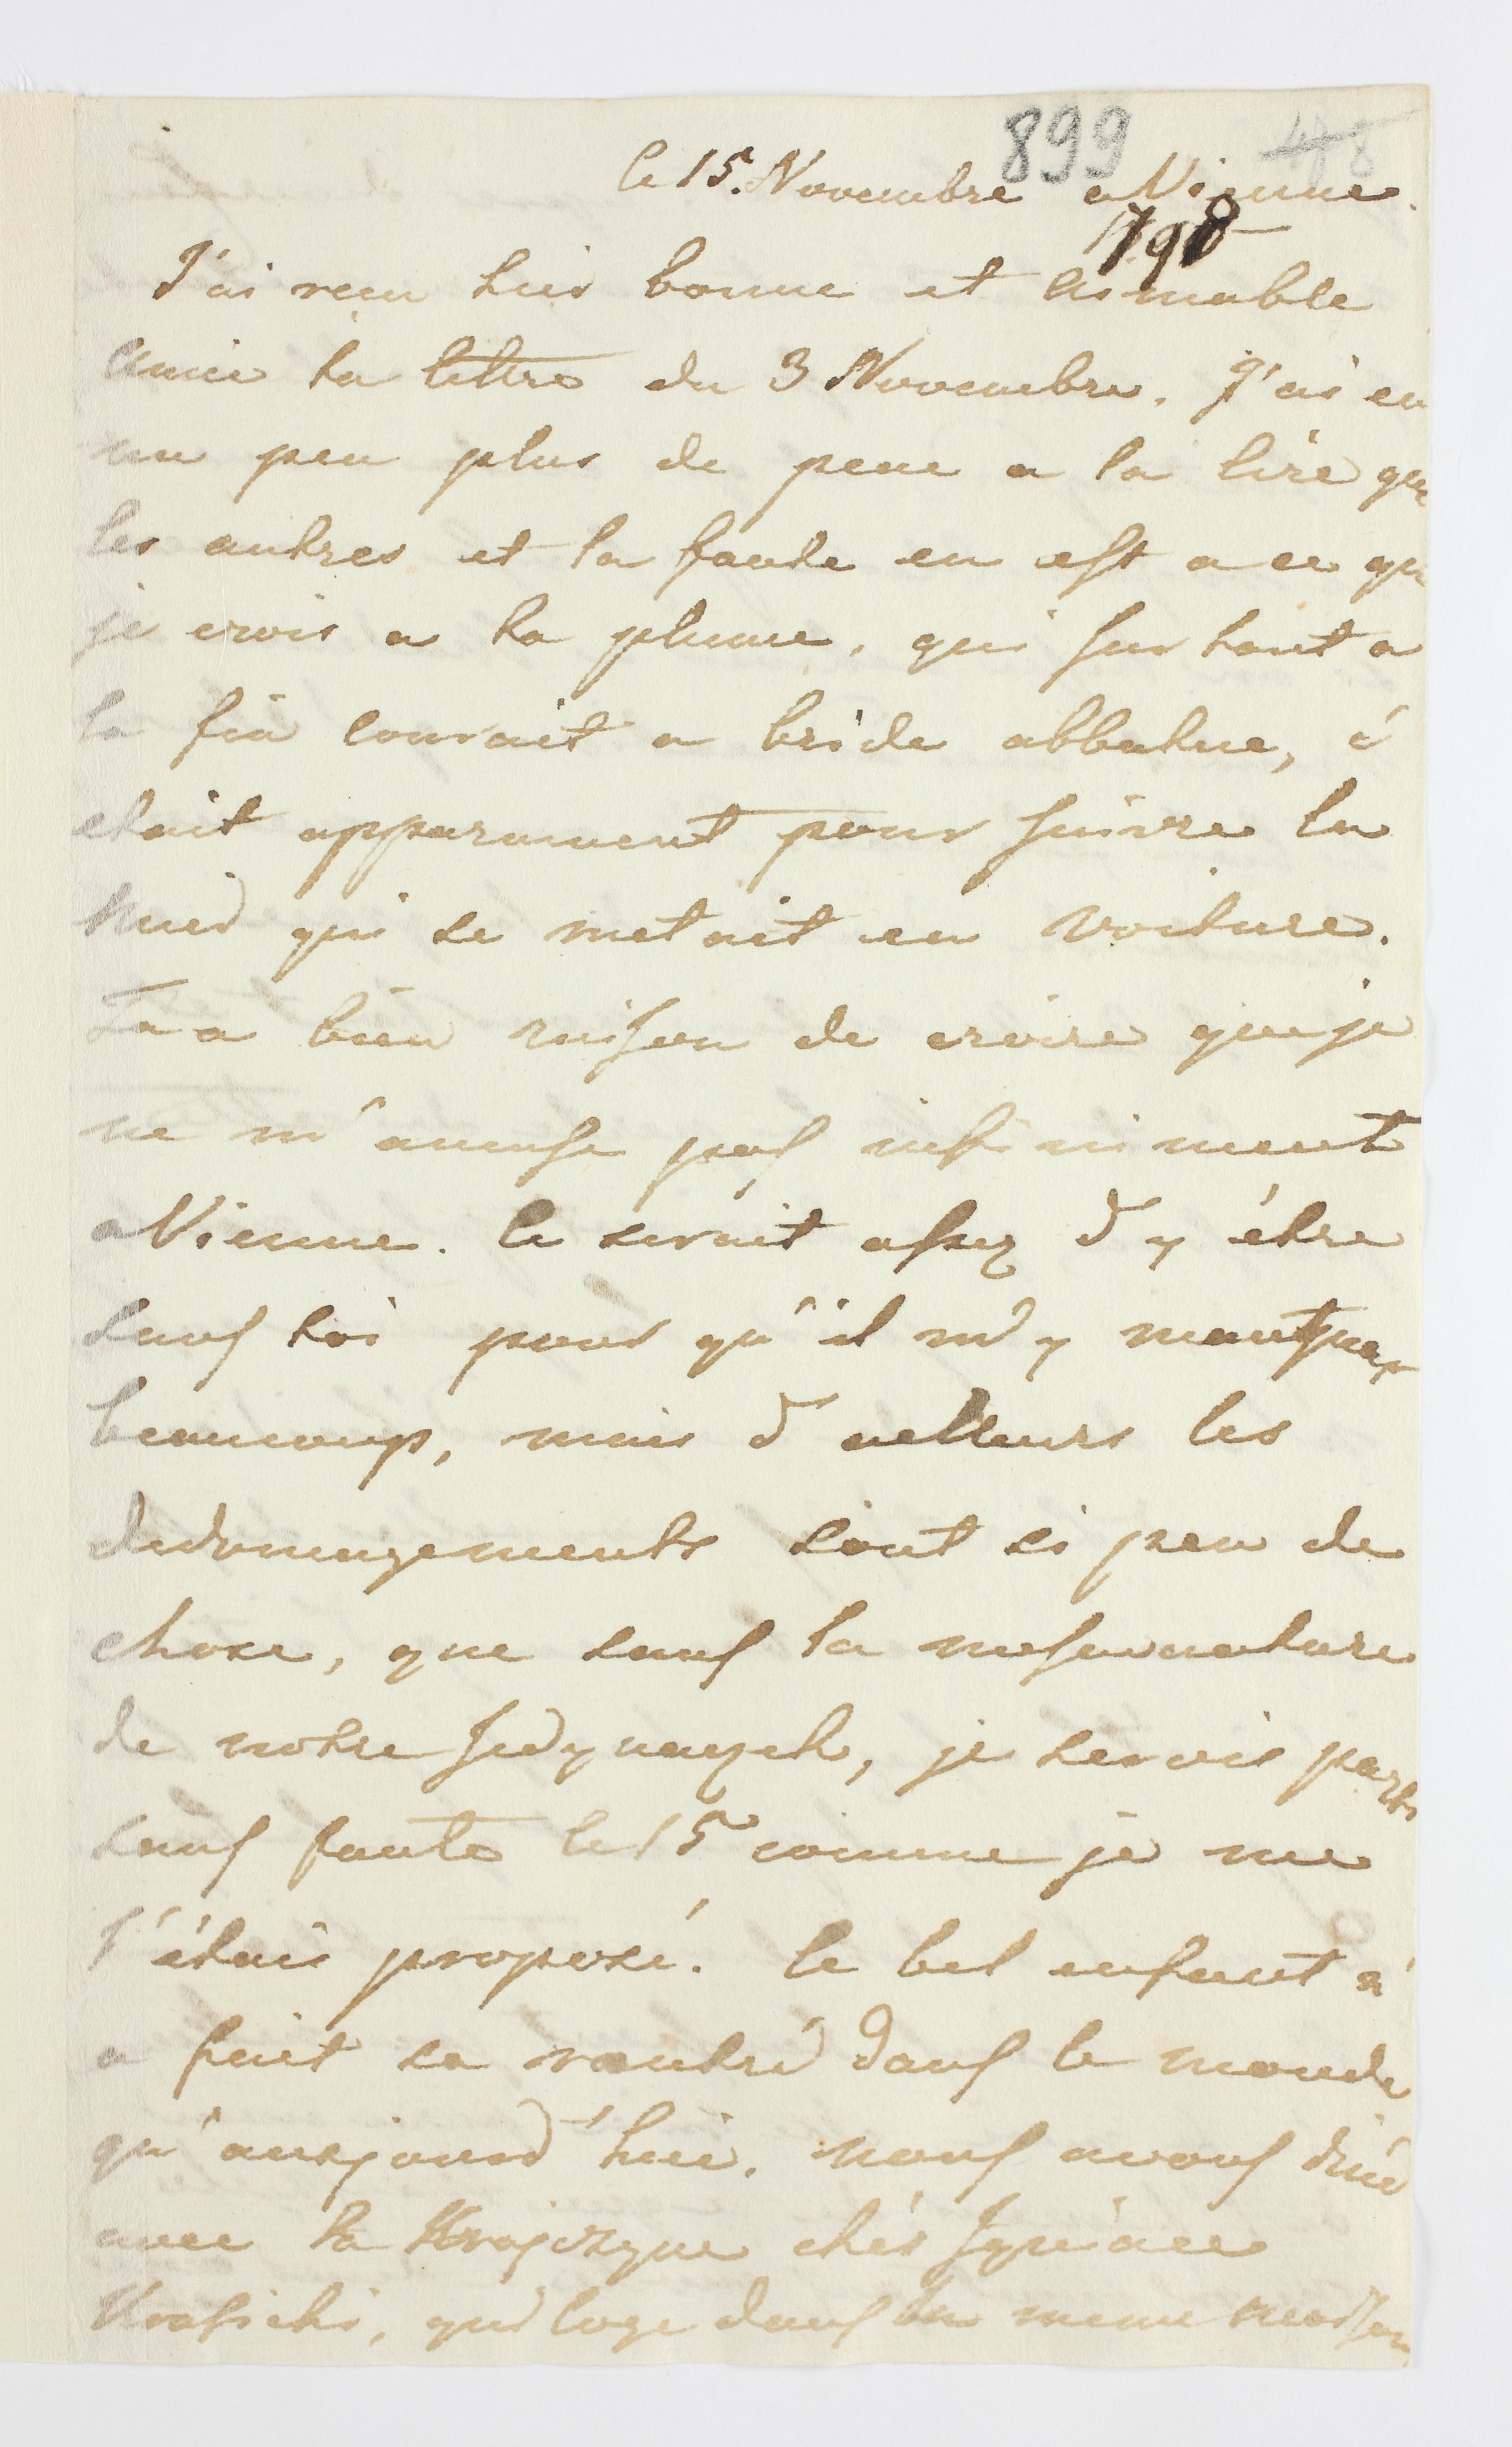 899 48
le 15. Novembre a Vienne.
1798
J'ai reçu hier bonne et aimable
amie ta lettre du 3 Novembre. J'ai eu
un peu plus de pene a la lire que
les autres et la faute en est a ce que
je crois a ta plume, qui sur tout a
la fin courait a bride abbatue, c'
etait apparament pour suivre la
qui se metait en voiture.
Tu a bien raison de croire que je
ne m'amuse pas infiniment
a Vienne. Ce serait assez d'y être
sans toi pour qu'il m'y manque
beaucoup, mais d'aelleurs les
dedomagements sont si peu de
chose, que sans la mesavanture
de notre Jedynaczek, je serais partis
sans faute le 15 comme je me
l'étais proposé. le bel enfant n'
a fait sa rentré dans le monde
qu'aujourd'hui. nous avons diné
avec la chés Ignace
Krasicki, qui loge dans la meme maison